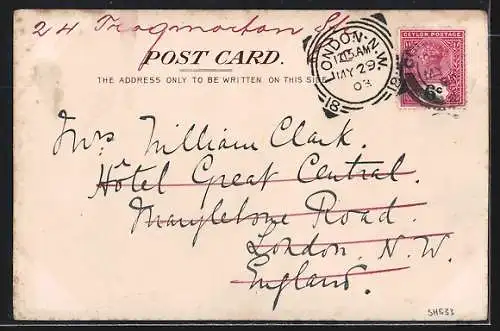 24 Trogmorton St.
POST CARD.
THE ADDRESS ONLY TO BE WRITTEN ON THIS SIDE
LONDON. N.W.
12.15.AM
MAY 29
03
18
CEYLON POSTAGE
6c
Mrs William Clark.
Hôtel Great Central.
Marylebone Road.
London. N. W.
England.
SH533